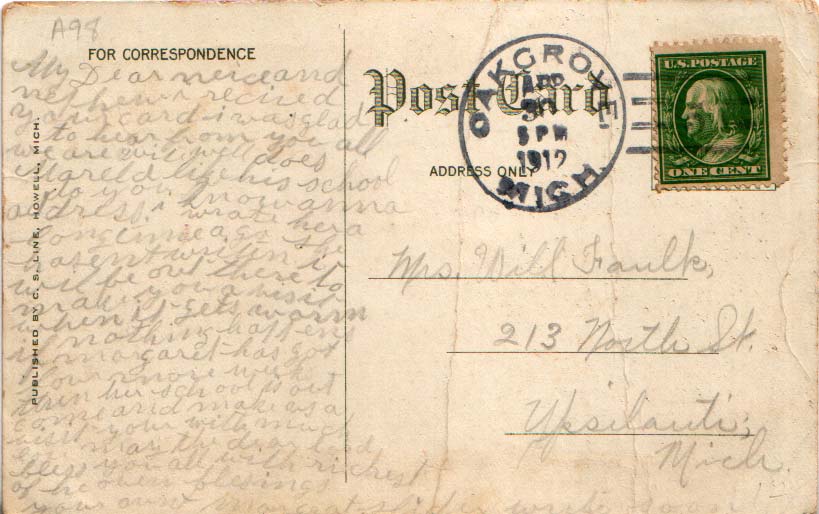 A98
FOR CORRESPONDENCE
Post Card
ADDRESS ONLY
OAKGROVE
APR
30
5 PM
1912
MICH.
U.S. POSTAGE
ONE CENT
PUBLISHED BY C. S. LINE, HOWELL, MICH.
My Dear neice and
nephew i recived
your card i was glad
to hear from you all
we are well does
like his school
do you know anna
address i wrote her a
long time ago she
hasent writen i
will be out there to
make you a visit
when it gets warm
if nothing happens
margaret has got
more week
then her school is out
come and make us a
visit your with much
may the dear lord
bless you all with richest
of his own blesings
your aunt margaret write soon
Mrs. Will Faulk,
213 North St.
Ypsilanti,
Mich.